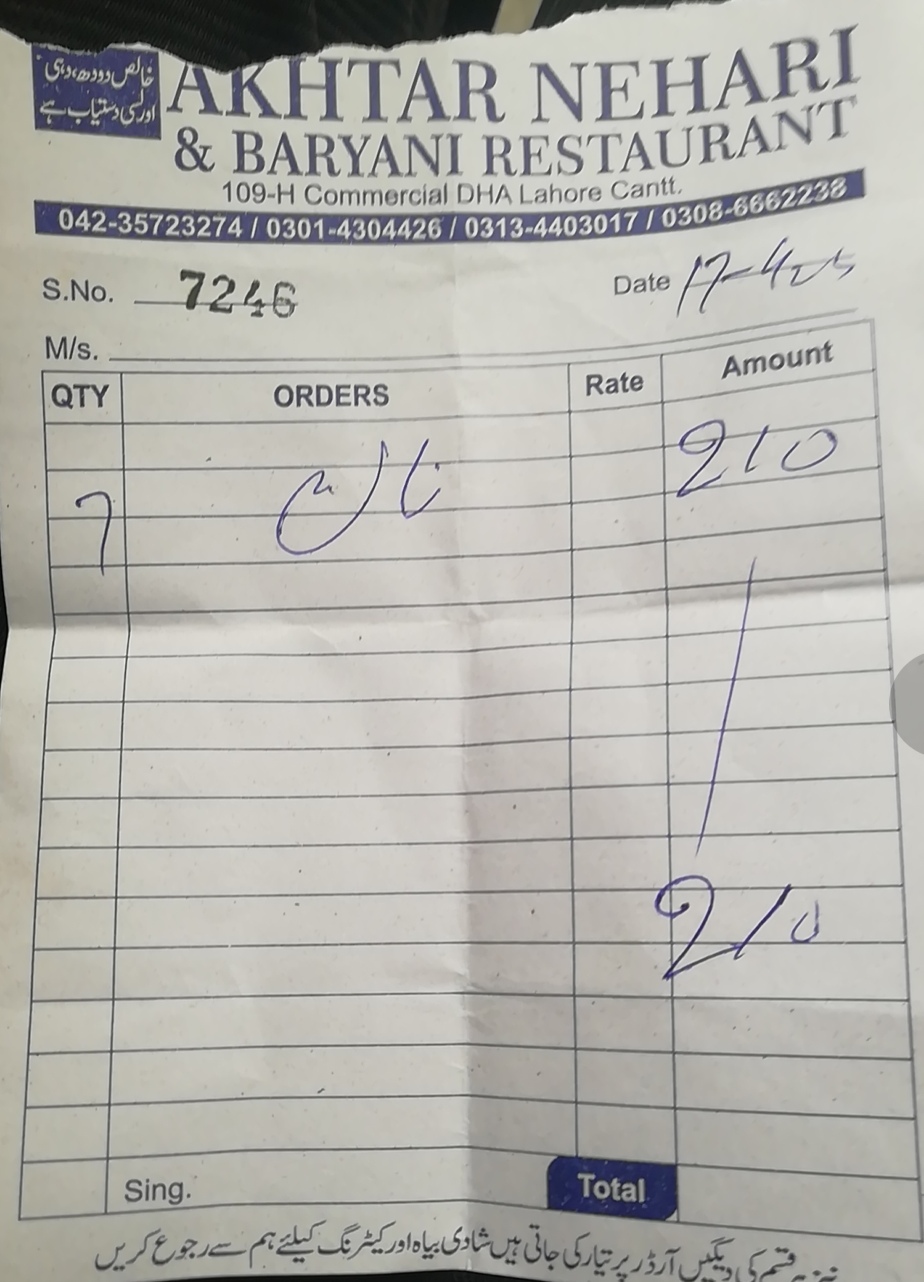 خالص دودھ، دہی
اور لسی دستیاب ہے
AKHTAR NEHARI
& BARYANI RESTAURANT
109-H Commercial DHA Lahore Cantt.
042-35723274 / 0301-4304426 / 0313-4403017 / 0308-6662238
S.No. 7246 Date 17-4-25
M/s.
QTY ORDERS Rate Amount
7 نان 210
210
Sing. Total
قسم کی دیگیں آرڈر پر تیار کی جاتی ہیں شادی بیاہ اور کیٹرنگ کیلئے ہم سے رجوع کریں